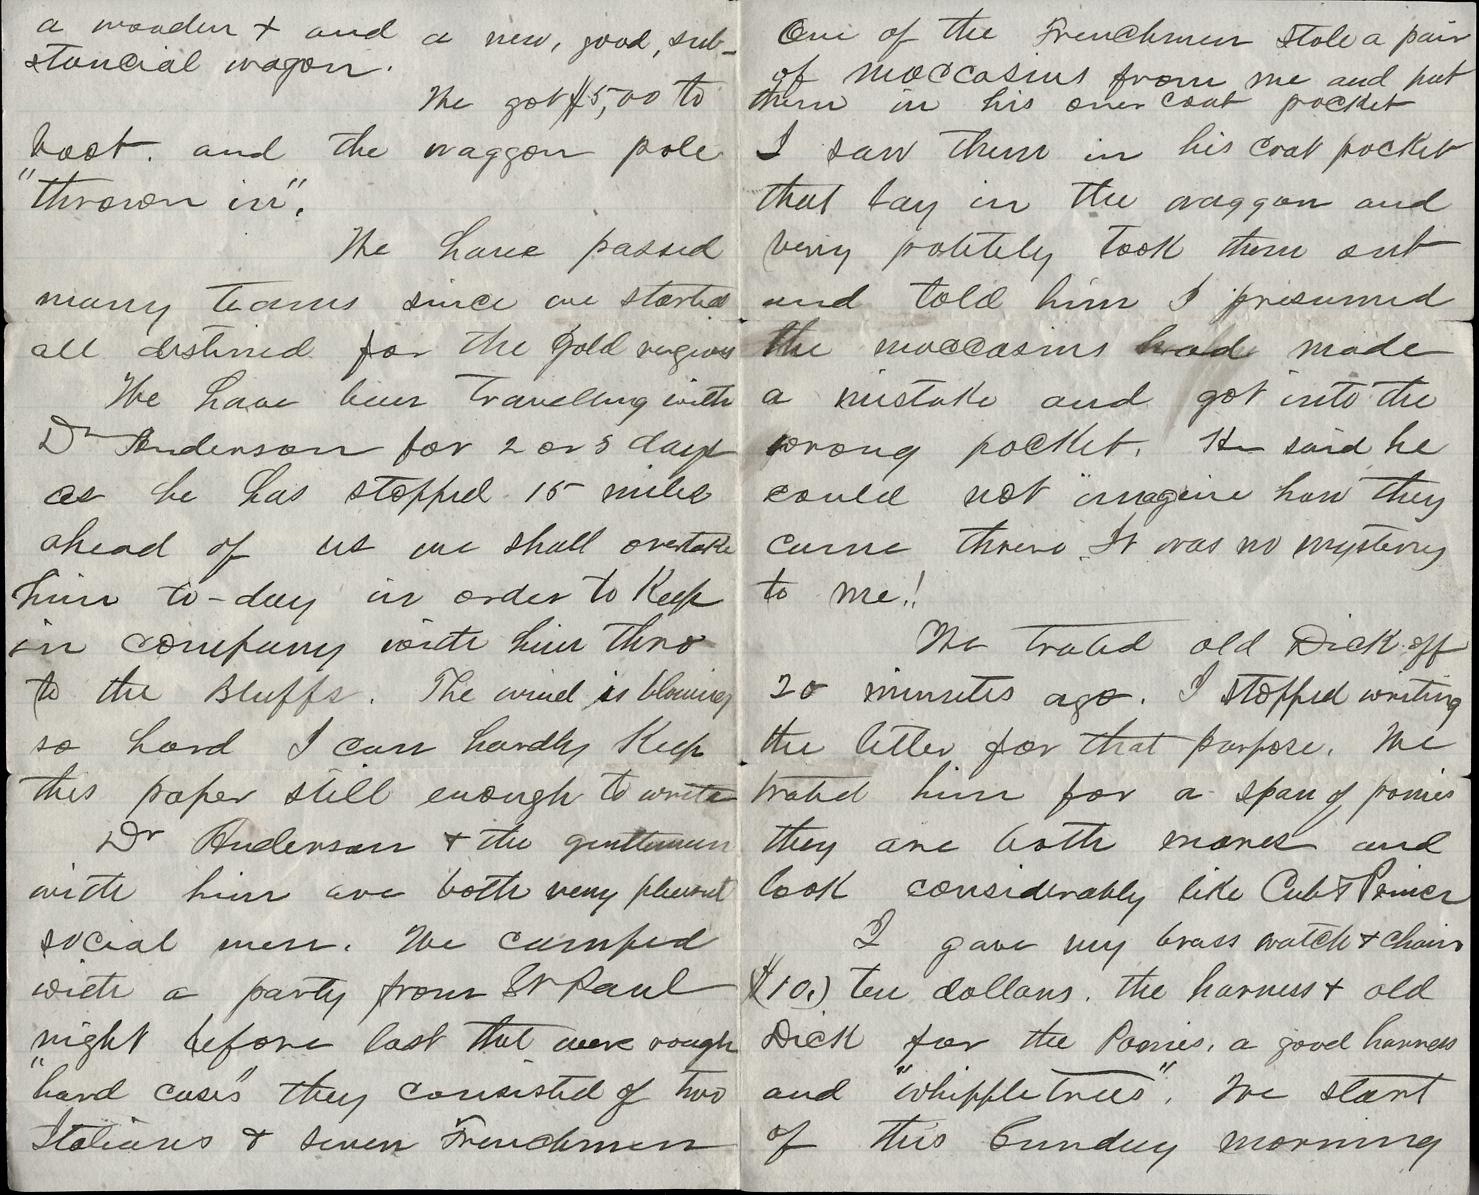 a wooden + and a new, good, sub-
stancial wagon.
We got $5,00 to
boot. and the waggon pole
"thrown in".
We have passed
many teams since we started
all destined for the Gold regions
We have been travelling with
Dr Anderson for 2 or 3 days
as he has stopped 15 miles
ahead of us we shall overtake
him to-day in order to Keep
in company with him thro
to the Bluffs. The wind is blowing
so hard I can hardly Keep
this paper still enough to write
Dr Anderson + the gentleman
with him are both very pleasant
social men. We camped
with a party from St Paul
night before last that were rough
"hard cases" they consisted of two
Italians & seven Frenchmen
One of the Frenchmen stole a pair
of moccasins from me and put
them in his over coat pocket
I saw them in his coat pocket
that lay in the waggon and
very politely took them out
and told him I presumed
the moccasins had made
a mistake and got into the
wrong pocket. He said he
could not imagine how they
came there. It was no mystery
to me!
We traded old Dick off
20 minutes ago. I stopped writing
the letter for that purpose. We
traded him for a span of ponies
they are both mares and
look considerably like Cub & Prince
I gave my brass watch & chain
($10.) ten dollars. the harness & old
Dick for the Ponies. a good harness
and "whippletrees". We start
of this Sunday morning